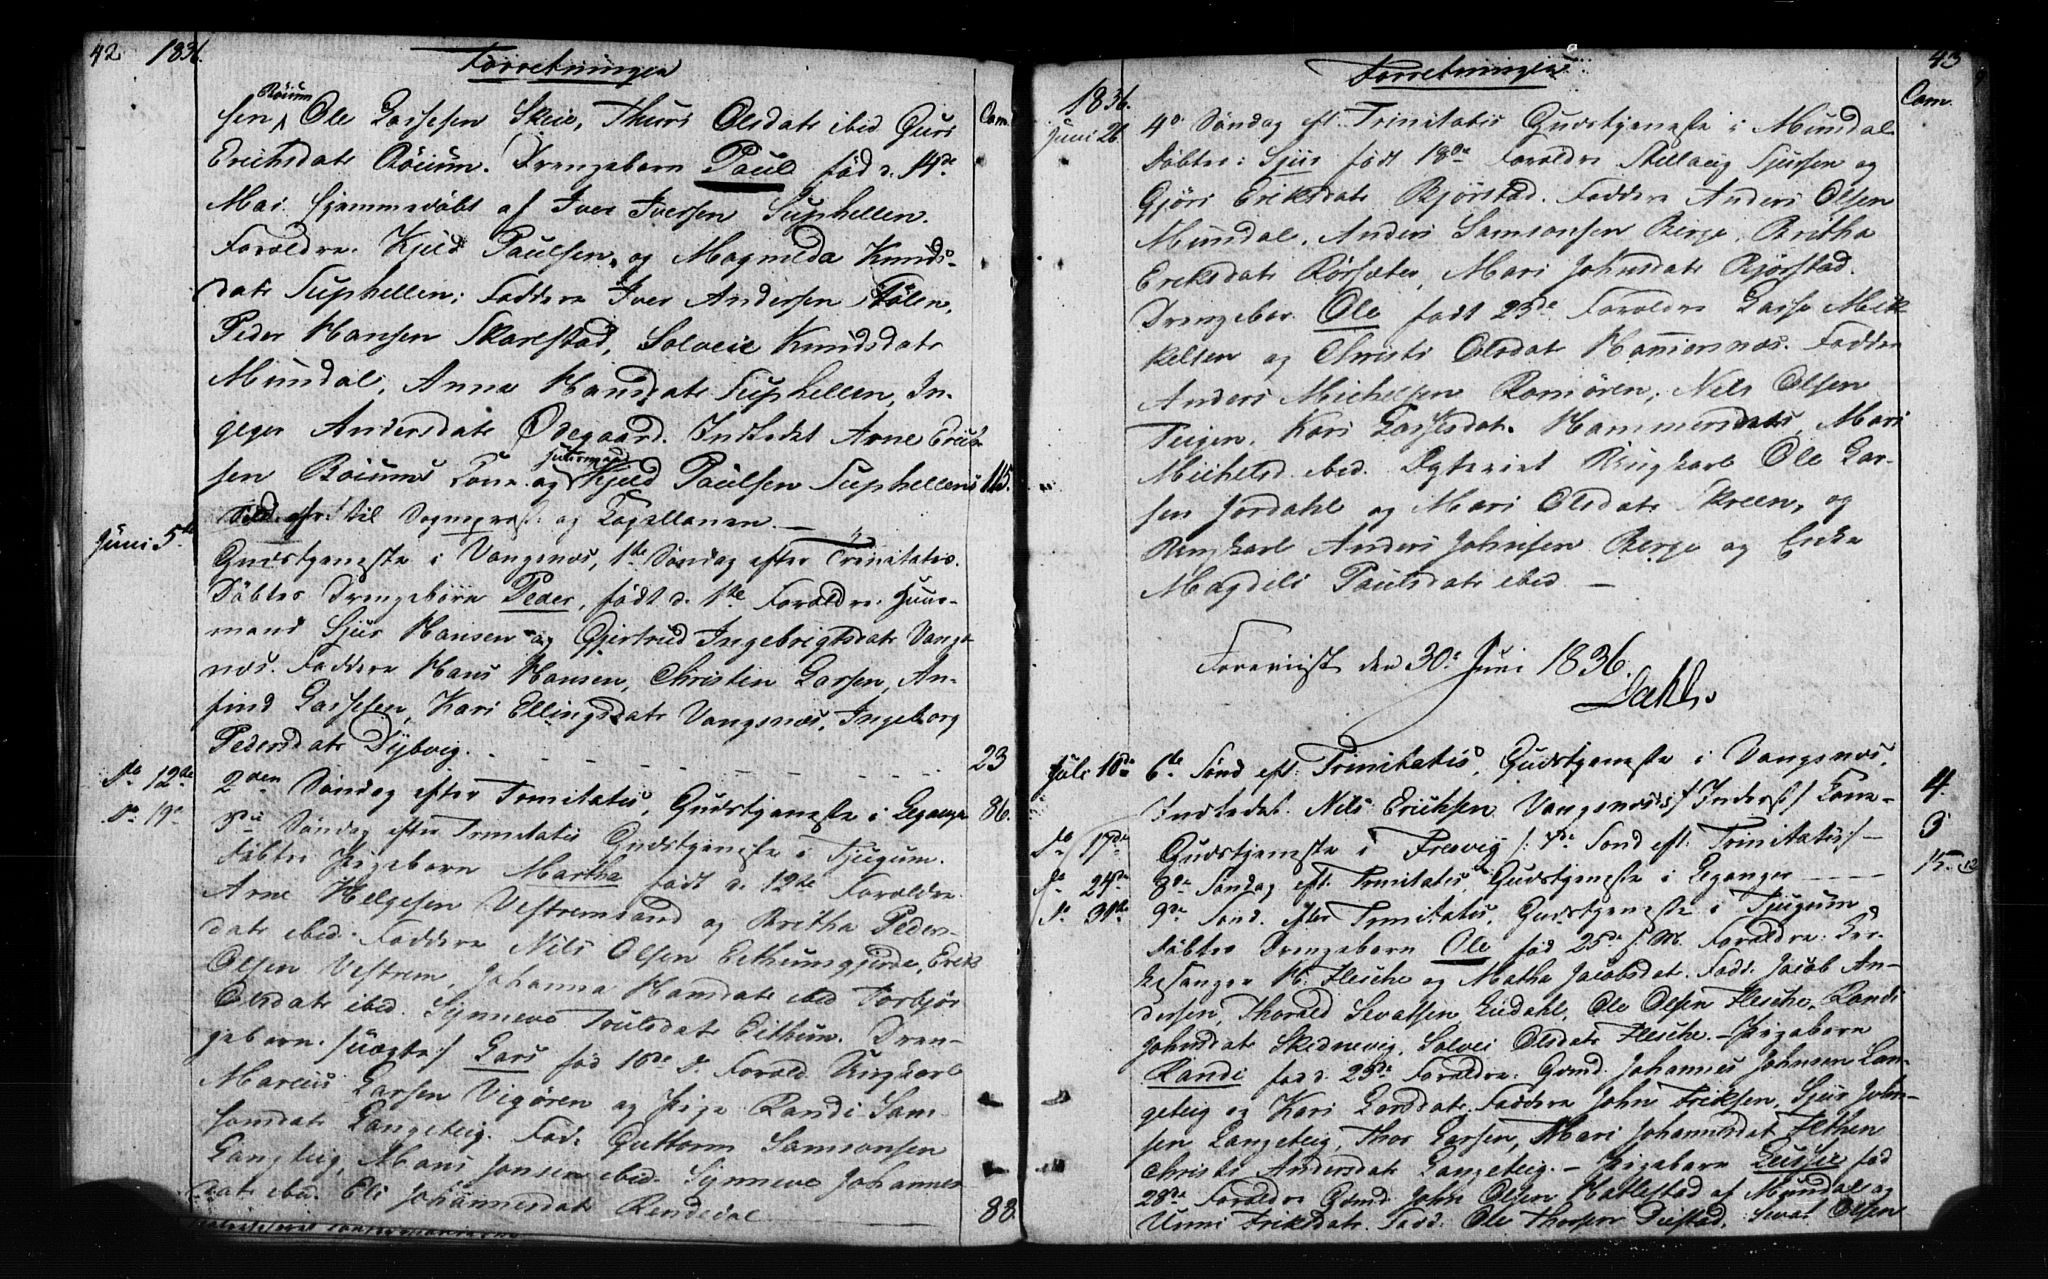 42 1836. Forretninger
Röium
sen Ole Lassesen Skeie, Thuri Olsdatr ibid Guri Com.
Erichsdatr Röium. Drengebarn Paul fød d. 14de
Mai hjemmedöbt af Iver Iversen Suphellen.
Foraldre. Kjeld Paulsen og Magnilda Knuds-
datr Suphellen; Faddere Iver Andersen Stölen,
Peder Hansen Skarestad, Solveie Knudsdatr
Mundal, Anna Hansdatr Suphellen, In-
geger Andersdatr Ödegaard. Indledet Arne Erich-
sen Röiums Kone og Kjeld Paulsen Suphellens 115.
til Sogneprest og Capellanen. —
Juni 5te Gudstjeneste i Vangsnæs, 1ste Söndag efter Trinitatis.
Döbtes Drengebarn Peder, född d. 1ste Foraldre: Huus-
mand Sjur Hansen og Gjertrud Ingebrigtsdatr Vangs-
næs. Faddere Hans Hansen, Christen Larsen, An-
find Lassesen, Kari Ellingsdatr Vangsnæs, Ingeborg
Pedersdatr Dybvig. 23
do 12te 2den Söndag efter Trinitatis, Gudstjeneste i Leganger 86.
do 19de 3die Söndag efter Trinitatis Gudstjeneste i Tjugum.
Döbtes Pigebarn Martha född d. 12te Foraldre
Arne Helgesen Vestremsand og Britha Peders-
datr ibid. Faddere Nils Olsen Eithumgjerde, Erik
Olsen Vestrem, Johanna Hansdatr ibid Torbjör
Olsdatr ibid. Synneve Troulsdatr Eithun. Dren-
gebarn /:uægte:/ Lars fød 10de d. Forald. Ungkarl
Marcus Larsen Vigören og Pige Randi Sam-
sonsdatr Langeteig. Fad: Guttorm Samsonsen
Langteig, Mons Jonsen ibid. Synneve Johannes-
datr ibid. Eli Johannesdatr Rendedal 88
1836. Forretninger 43
Com.
Juni 26 4de Söndag eft. Trinitatis Gudstjeneste i Mundal
Döbtes: Sjur född 18de Foraldre Stellaug Sjursen og
Gjöri Eriksdatr Bjørstad. Faddere Anders Olsen
Mundal, Anders Samsonsen Berge, Britha
Eriksdatr Rörsæter, Mari Johnsdatr Bjørstad.
Drengebar. Ole född 23de Foraldre Lasse Mik-
kelsen og Christi Olsdatr Hamersnæs. Faddere
Anders Michelsen Romören, Nils Olsen
Teigen, Kari Lassesdatr Hammersnæs, Mari
Michelsd ibid. Egteviet Ungkarl Ole Lar-
sen Jordahl og Mari Olsdatr Skreen, og
Ungkarl Anders Johnsen Berge og Enke
Magdeli Paulsdatr ibid —
Foreviist den 30te Juni 1836.
Dahl.
Juli 10de 6te Sönd eft. Trinitatis, Gudstjeneste i Vangsnæs,
Indledet. Nils Erichsen Vangsnæs's /:Inderst:/ Kone 4
do 17de Gudstjeneste i Fresvig /:7de Sönd eft. Trinitatis:/ 3
do 24de 8de Söndag eft. Trinitatis, Gudstjeneste i Leganger 15. 12
do 31te 9de Sönd. efter Trinitatis, Gudstjeneste i Tjugum
Döbtes Drengebarn Ole fød 25de f: M. Foraldre: Kir-
kesanger H. Flesche og Matha Jacobsdat. Fadd. Jacob An-
dersen, Thorald Sevatsen Eidahl, Ole Olsen Flesche, Randi
Johnsdatr Skednevig, Solvei Olsdatr Flesche. — Pigebarn
Randi fød d. 23de Foraldre. Gmd. Johannes Johnsen Lan-
geteig og Kari Larsdatr. Faddere John Eriksen, Sjur John-
sen Langeteig, Thor Larsen, Mari Johannesdat Flethen
Christi Andersdat Langeteig. — Pigebarn fød
28de Foraldre Gbmd. John Olsen Hatlestad af Mundal og
Unni Eriksdatr. Fadd. Ole Thorsen Distad. Sevat Olsen